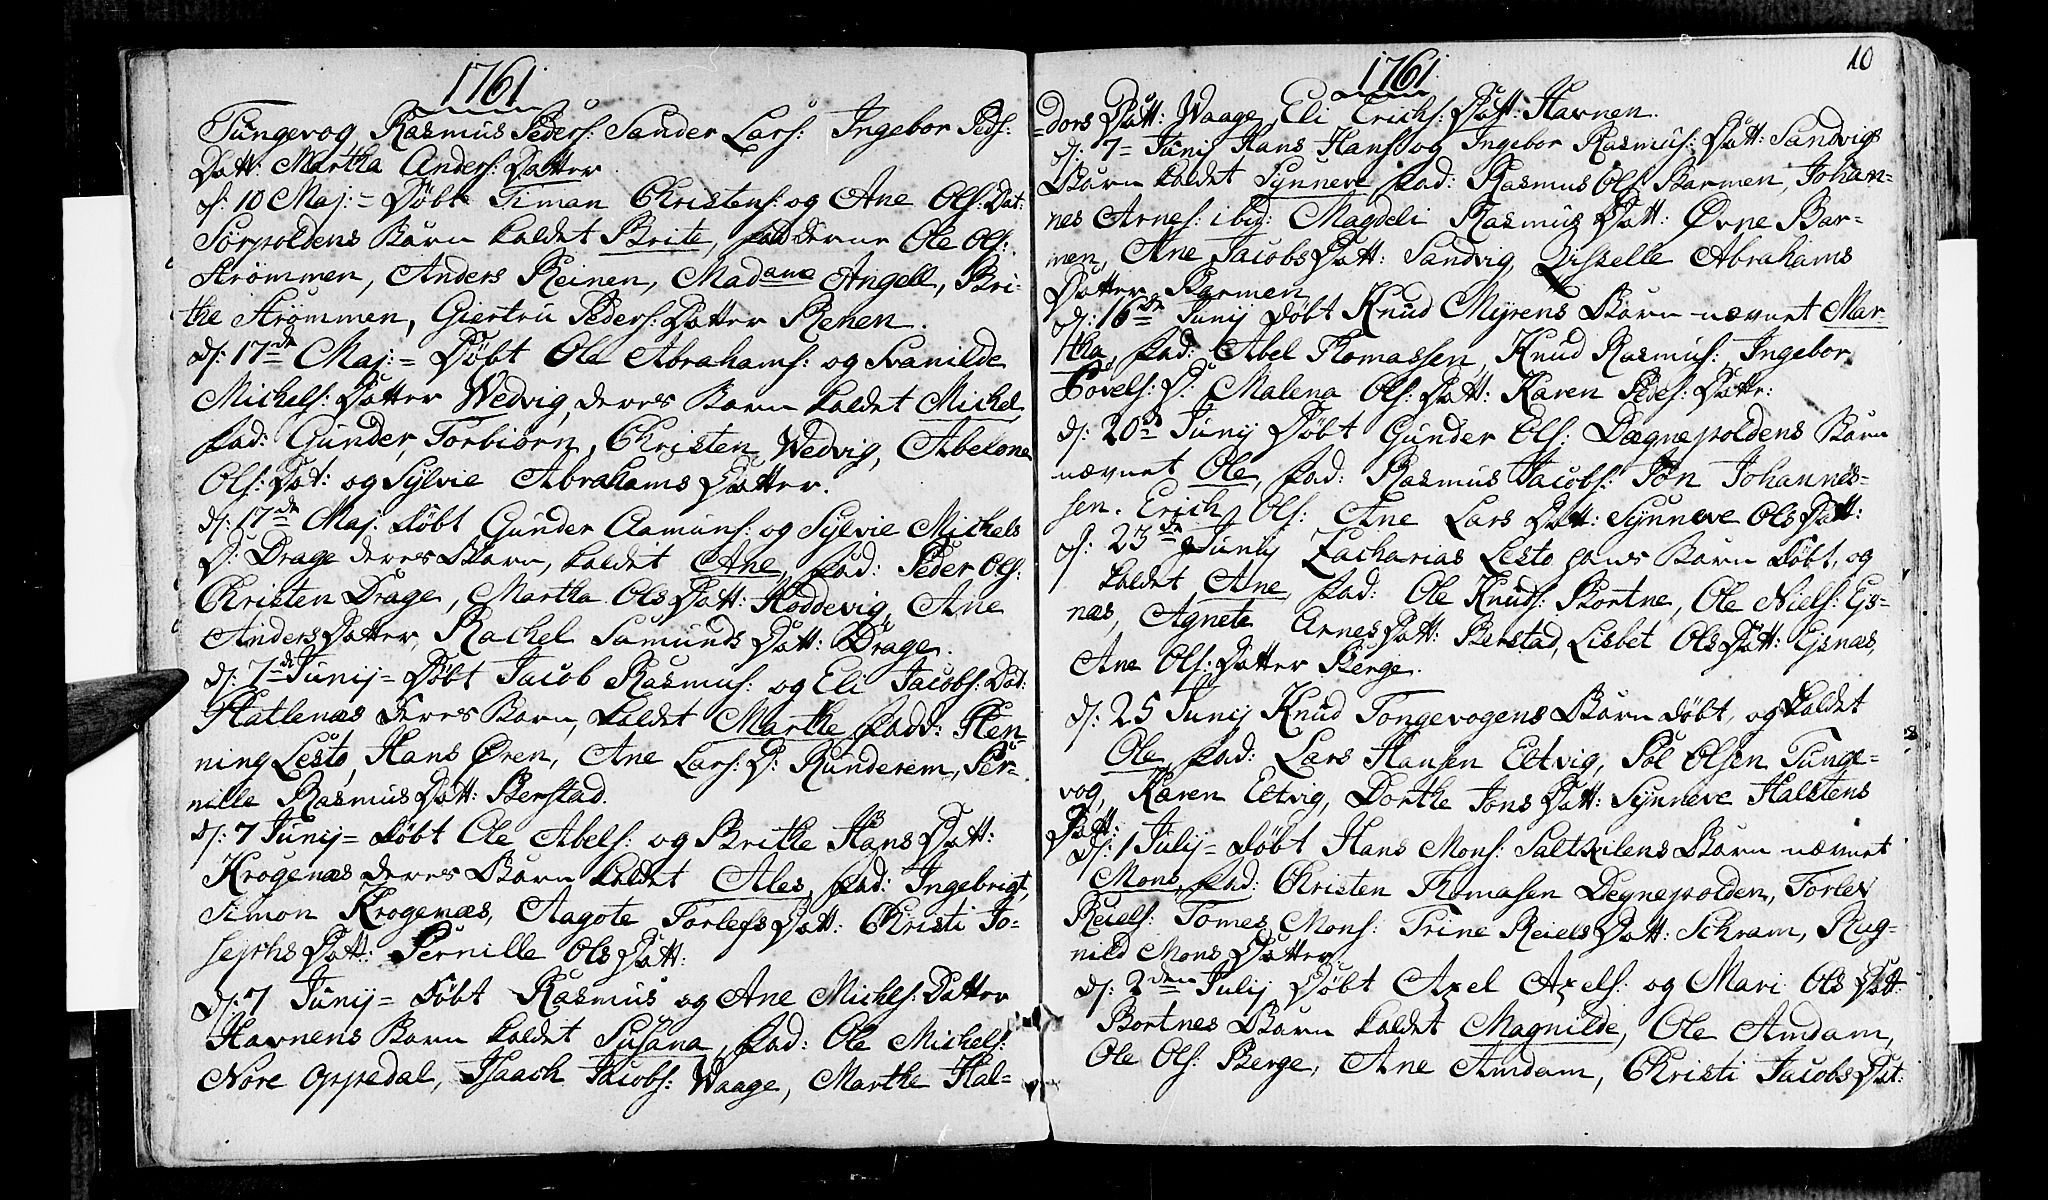 1761
Tungevog Rasmus Peders: Sander Lars: Ingebor Peds:
Datt: Martha Anders: Datter
d: 10 Maj: = Døbt Timan Christens: og Ane Ols: Dat:
Sørpoldens Barn kaldet Brite, fadderne Ole Ols:
Strømmen, Anders Reinen, Madame Angell, Bri-
the Strømmen, Giertru Peders: Datter Renen.
d: 17de Maj: = Døbt Ole Abrahams: og Svanilde
Michels: Datter Wedvig, deres Barn kaldet Michel
fad: Gunder, Torbiørn, Christen Wedvig, Abelone
Ols: Dat: og Sylvie Abrahams Datter.
d: 17de Maj: døbt Gunder Aamuns: og Sylvie Michels
D: Drage deres Barn, kaldet Ane, fad: Peder Ols:
Christen Drage, Martha Ols Datt: Hoddevig, Ane
Anders Datter, Rachel Samunds Datt: Drage.
d: 7de Junij = Døbt Jacob Rasmus: og Eli Jacobs: Dat:
Hatlenæs deres Barn, kaldet Marthe fadd: Hen
ning Lesto, Hans Øren, Ane Lars: D: Runderem, Per-
nille Rasmus Datt: Berstad.
d: 7 Junij = døbt Ole Abels: og Brithe Hans Datt:
Krogenæs deres Barn kaldet Ales, fad: Ingebrigt,
Simon Krogenæs, Aagote Torlefs Datt: Christi Jo-
sephs Datt: Pernille Ols Datt:
d: 7 Junij = døbt Rasmus og Ane Michls: Datter
Havnens Barn kaldet Susana, fad: Ole Michels:
Nore Oppedal, Isaach Jacobs: Waage, Marthe Hal-
1761
10
=dors Datt: Waage, Eli Erichs: Datt: Havnen.
d: 7 = Junij Hans Hans: og Ingebor Rasmus: Datt: Sandvigs
Barn kaldet Synneve fad: Rasmus Ols: Barmen, Johan-
nes Arnes: ibid: Magdeli Rasmus Datt: Øvne Bar-
men, Ane Jacobs Datt: Sandvig, Zisselle Abrahams
Datter Barmen
d: 16de Junij døbt Knud Myrens Barn nævnet Mar-
tha, fad: Abel Thomassen, Knud Rasmus: Ingebor
Povels: D: Malena Ols: Datt: Karen Peders: Dattr:
d: 20de Junij Døbt Gunder Ols: Dægnepoldens Barn
nævnet Ole, fad: Rasmus Jacobs: Jon Johannes-
sen. Erich Ols: Ane Lars Datt: Synneve Ols Datt:
d: 23de Junij Zacharias Lesto hans Barn døbt, og
kaldet Ane, fad: Ole Knuds: Bortne, Ole Niels: Ejs-
næs, Agnete Arnes Datt: Berstad, Lisbet Ols Datt: Ejsnæs,
Ane Ols: Datter Berge.
d: 25 Junij Knud Tongevogens Barn døbt, og kaldet
Ole, fad: Lars Hansen Eltvig, Pol Olsen Tunge-
vog, Karen Eltvig, Dorthe Jons Datt: Synneve Halstens
Datt:
d: 1 Julij = døbt Hans Mons: Saltkilens Barn nævnet
Mons, fad: Christen Thomasen Degnepolden, Torlef
Reiels: Tomes Mons: Trine Reiels Datt: Schram, Rug-
nild Mons Datter
d: 2den Julij Døbt Axel Axels: og Mari Ols Datt:
Bortnes Barn kaldet Magnilde, Ole Amdam,
Ole Ols: Berge, Ane Amdam, Christi Jacobs Dat: